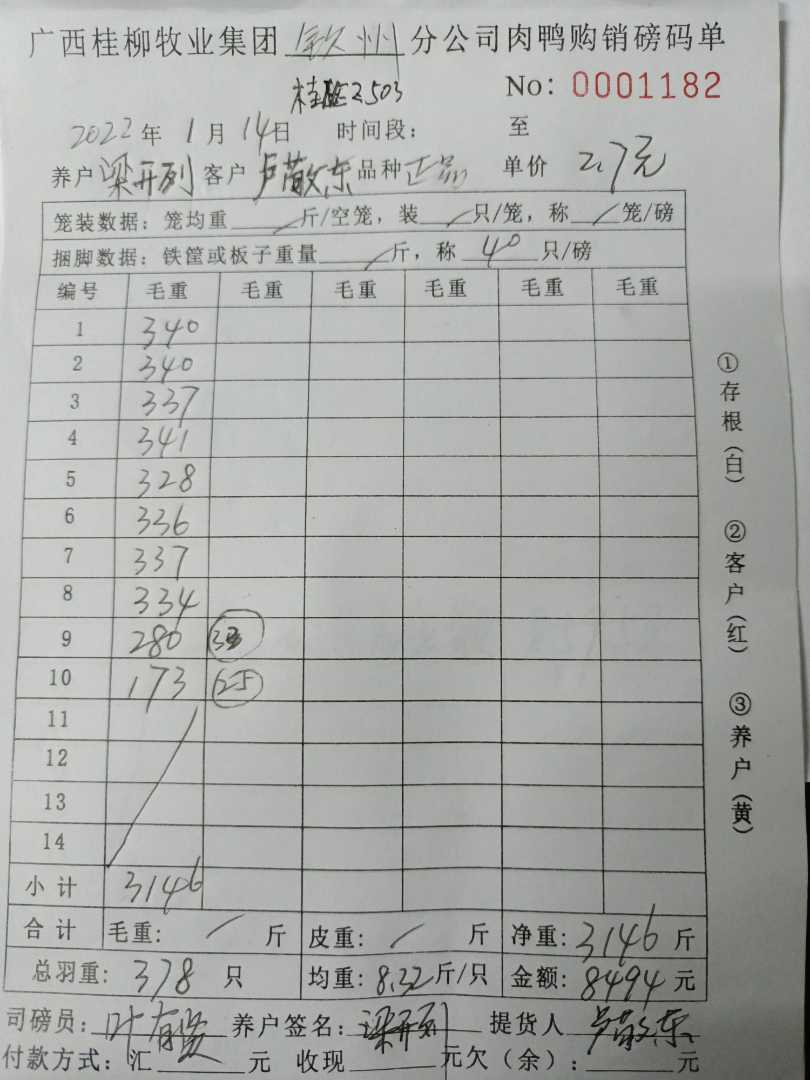 广西桂柳牧业集团 钦州 分公司肉鸭购销磅码单
2503 No: 0001182
2022年 1月 14日 时间段: 至
养户 梁开列 客户 卢敬东 品种 正品 单价 2.7元
笼装数据: 笼均重 / 斤/空笼, 装 / 只/笼, 称 / 笼/磅
捆脚数据: 铁筐或板子重量 / 斤, 称 40 只/磅
编号 毛重 毛重 毛重 毛重 毛重 毛重
1 340
2 340
3 337
4 341
5 328
6 336
7 337
8 334
9 280
10 173 25
11
12
13
14
小计 3146
合计 毛重: / 斤 皮重: / 斤 净重: 3146 斤
总羽重: 378 只 均重: 8.32 斤/只 金额: 8494 元
司磅员: 叶有 养户签名: 梁开列 提货人 卢敬东
付款方式: 汇 元 收现 元欠(余): 元
①存根(白) ②客户(红) ③养户(黄)